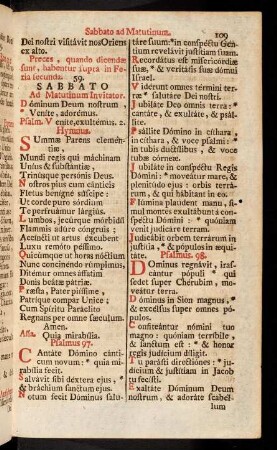 Sabbato ad Matutinum.
109
Dei nostri visitávit nos Oriens
ex alto.
Preces, quando dicendæ
sunt, habentur supra in Fe-
ria secunda. 59.
SABBATO
Ad Matutinum Invitator.
Dóminum Deum nostrum, *
Venite, adorémus.
Psalm. Venite, exultémus. 2.
Hymnus.
SUmmæ Parens clemén-
tiæ,
Mundi regis qui máchinam
Unius & substántiæ,
Trinúsque personis Deus.
Nostros pius cum cánticis
Fletus benígnè súscipe:
Ut corde puro sórdium
Te perfruámur lárgiùs.
Lumbos, jecúrque mórbidum
Flammis adúre cóngruis:
Accíncti ut artus éxcubent
Luxu remóto péssimo.
Quicúmque ut horas nóctium
Nunc concinéndo rúmpimus,
Ditémur omnes áffatim
Donis beátæ pátriæ.
Præsta, Pater piíssime,
Patríque compar Unice;
Cum Spíritu Paráclito
Regnans per omne sæculum.
Amen.
Aña. Quia mirabília.
Psalmus 97.
CAntáte Dómino cánti-
cum novum: * quia mi-
rabília fecit.
Salvávit sibi déxtera ejus, *
& bráchium sanctum ejus.
Notum fecit Dóminus salu-
táre suum: * in conspéctu Gén-
tium revelávit justítiam suam.
Recordátus est misericórdiæ
suæ, * & veritátis suæ dómui
Israel.
Vidérunt omnes términi ter-
ræ * salutáre Dei nostri.
Jubiláte Deo omnis terra: *
cantáte, & exultáte, & psál-
lite.
Psállite Dómino in cíthara,
in cíthara, & voce psalmi: * in
in tubis ductílibus, & voce
tubæ córneæ.
Jubiláte in conspéctu Regis
Dómini: * moveátur mare, &
plenitúdo ejus: orbis terrá-
rum, & qui hábitant in eo.
Flúmina plaudent manu, si-
mul montes exultábunt à con-
spéctu Dómini: * quóniam
venit judicáre terram.
Judicábit orbem terrárum in
justítia, * & pópulos in æqui-
táte.
Psalmus. 98.
DOminus regnávit, iras-
cántur pópuli * qui
sedet super Chérubim, mo-
veátur terra.
Dóminus in Sion magnus, *
& excélsus super omnes pó-
pulos.
Confiteántur nómini tuo
magno: quóniam terríbile,
& sanctum est: * & honor
regis judícium díligit.
Tu parásti directiónes: * ju-
dícium & justítiam in Jacob
tu fecísti.
Exaltáte Dóminum Deum
nostrum, & adoráte scabél-
lum